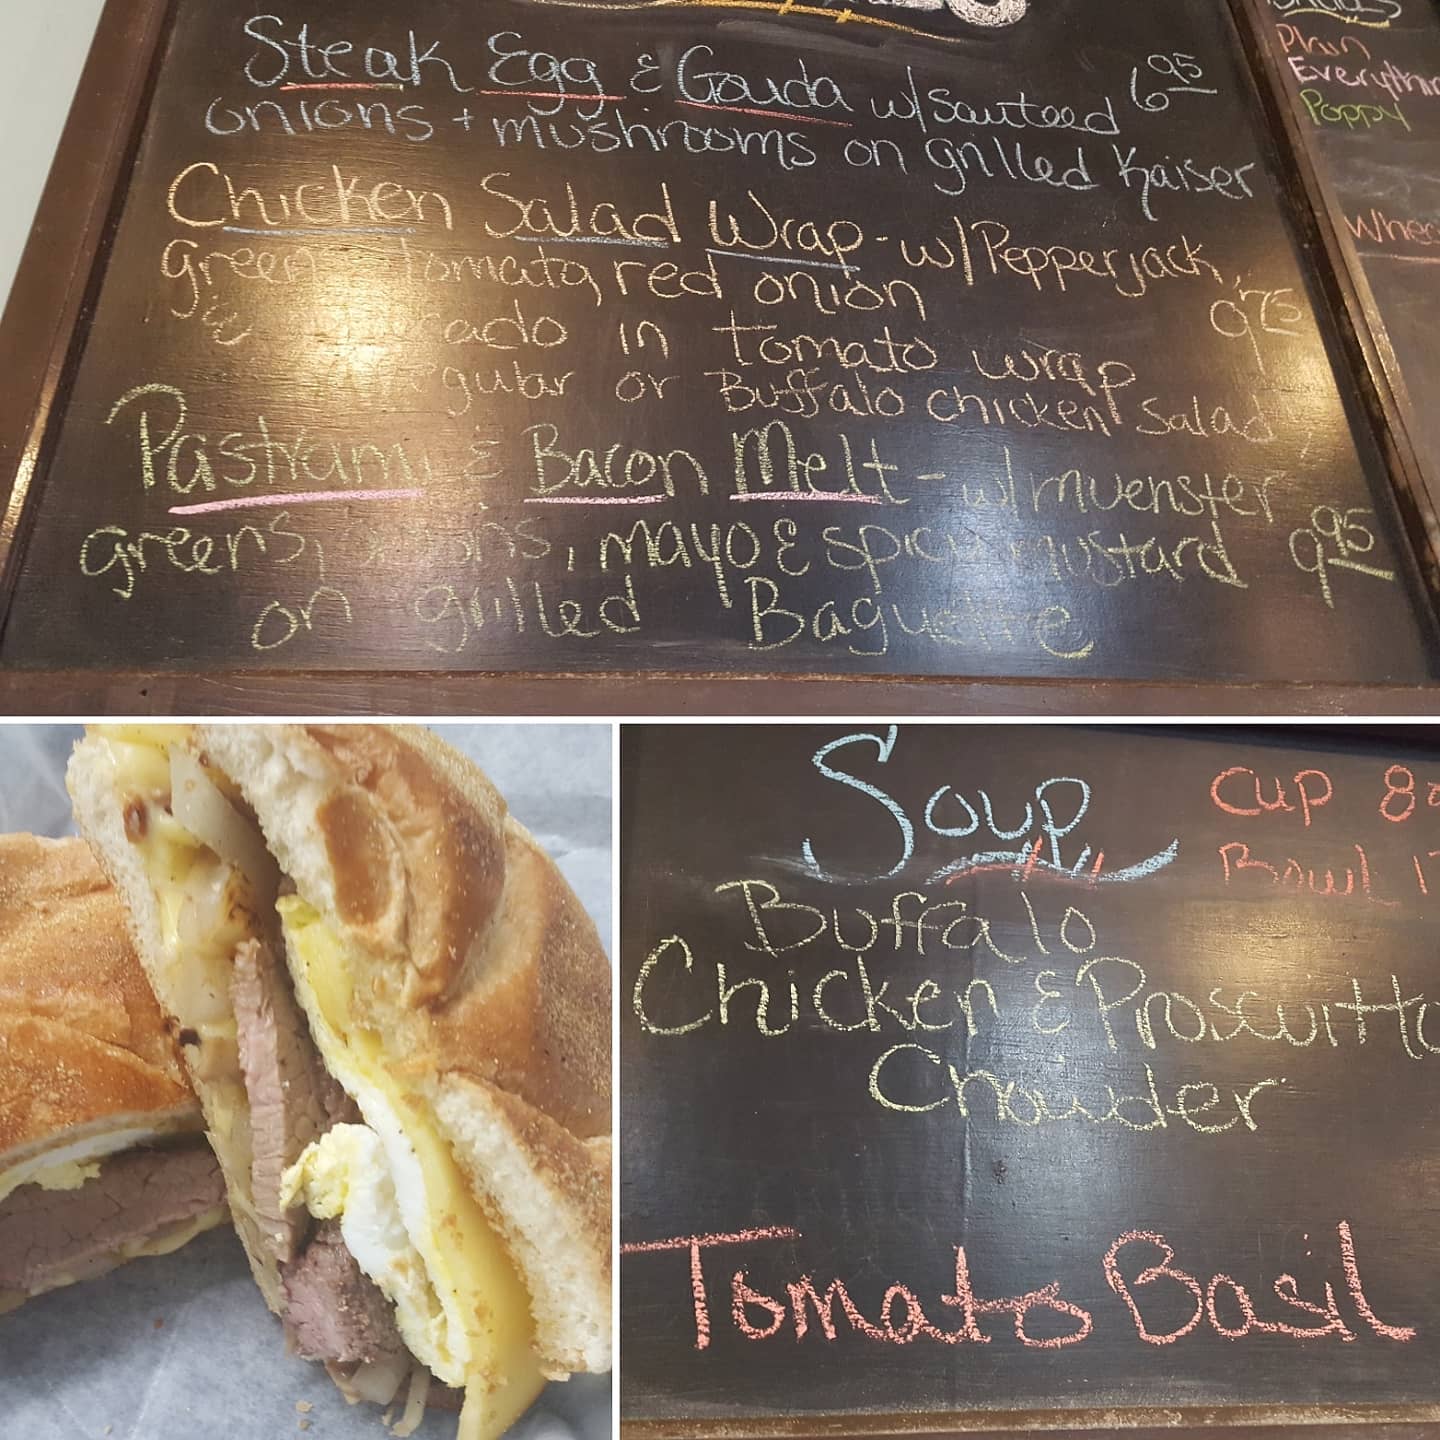 Steak Egg & Gouda w/Sauteed 6 95
onions + mushrooms on grilled Kaiser
Chicken Salad Wrap - w/Pepperjack,
green tomato, red onion
in tomato wrap 9 75
or Buffalo chicken Salad
Pastrami & Bacon Melt - w/muenster
greens, mayo & spicy mustard 9 95
on grilled Baguette
Plain
Poppy
Soup
Cup 8o
Bowl 1
Buffalo
Chicken & Proscuitto
Chowder
Tomato Basil